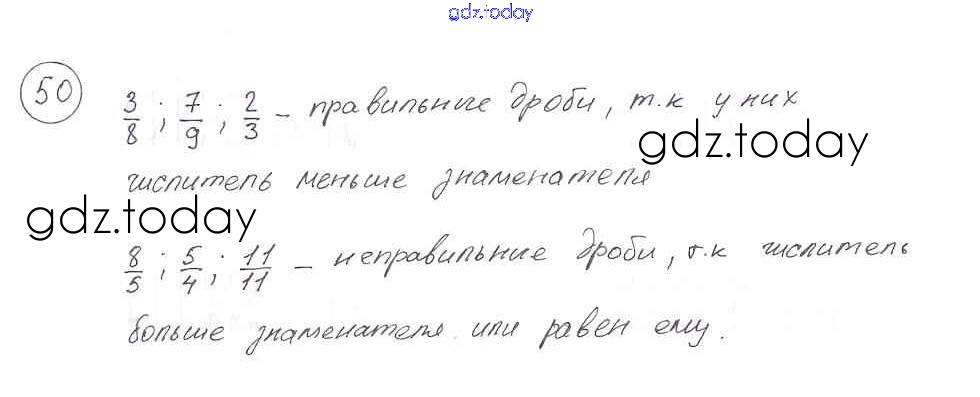 gdz.today
50 3/8 ; 7/9 ; 2/3 – правильные дроби, т.к у них
gdz.today
числитель меньше знаменателя
gdz.today
8/5 ; 5/4 ; 11/11 – неправильные дроби, т.к числитель
больше знаменателя или равен ему.